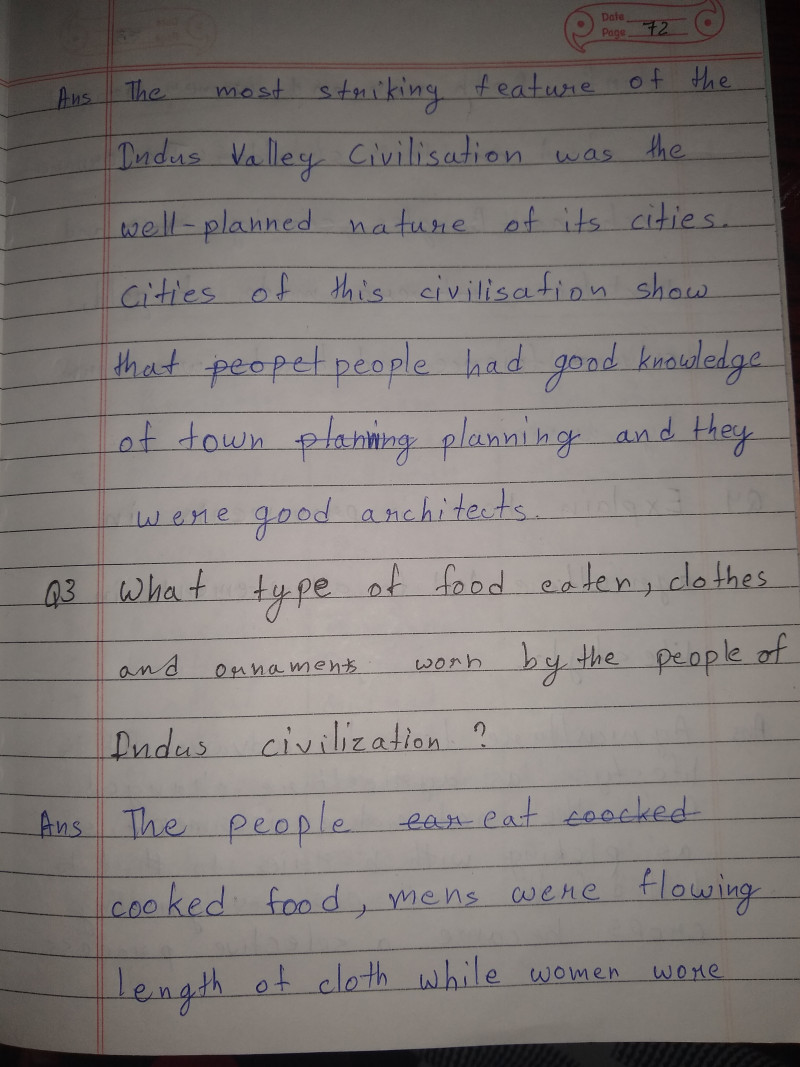 Date
Page 72
Ans The most striking feature of the
Indus Valley Civilisation was the
well-planned nature of its cities.
Cities of this civilisation show
that peopet people had good knowledge
of town planning planning and they
were good architects.
Q3 What type of food eaten, clothes
and ornaments worn by the people of
Indus civilization ?
Ans The people ear eat coocked
cooked food, mens were flowing
length of cloth while women wore